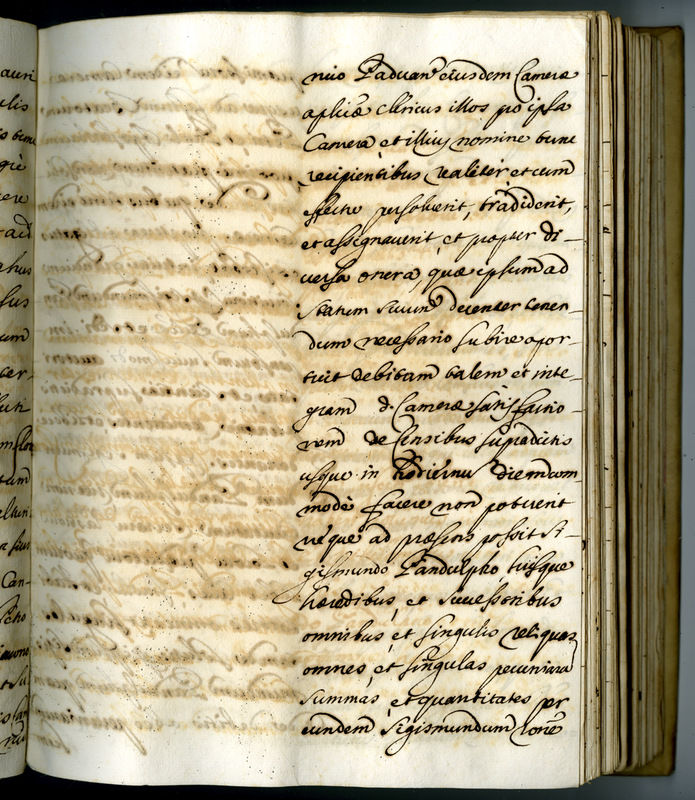 auri
ulis
gie
ere
ahus
sus
um
cer-
luti
tum
Can-
nuo Paduanˢ eiusdem Cameræ
aplicæ clericus illos pō ipsa
Camera, et illius nomine tunc
recipientibus realiter, et cum
effectu persolverit, tradiderit,
et assignaverit, et propter di-
versa onera, quæ ipsum ad
statum suum decenter tenen-
dum necessario subire opor-
tuit debitam talem et inte-
gram d. Cameræ satisfactio-
nem de sensibus supradictis
usque in hodiernū diem com-
modè facere non potuerit
neque ad præsens possit Si-
gismundo Pandulpho, suisque
hæredibus, et successoribus
omnibus, et singulis reliquas
omnes, et singulas pecuniarū
summas, et quantitates per
eundem Sigismundum Conē